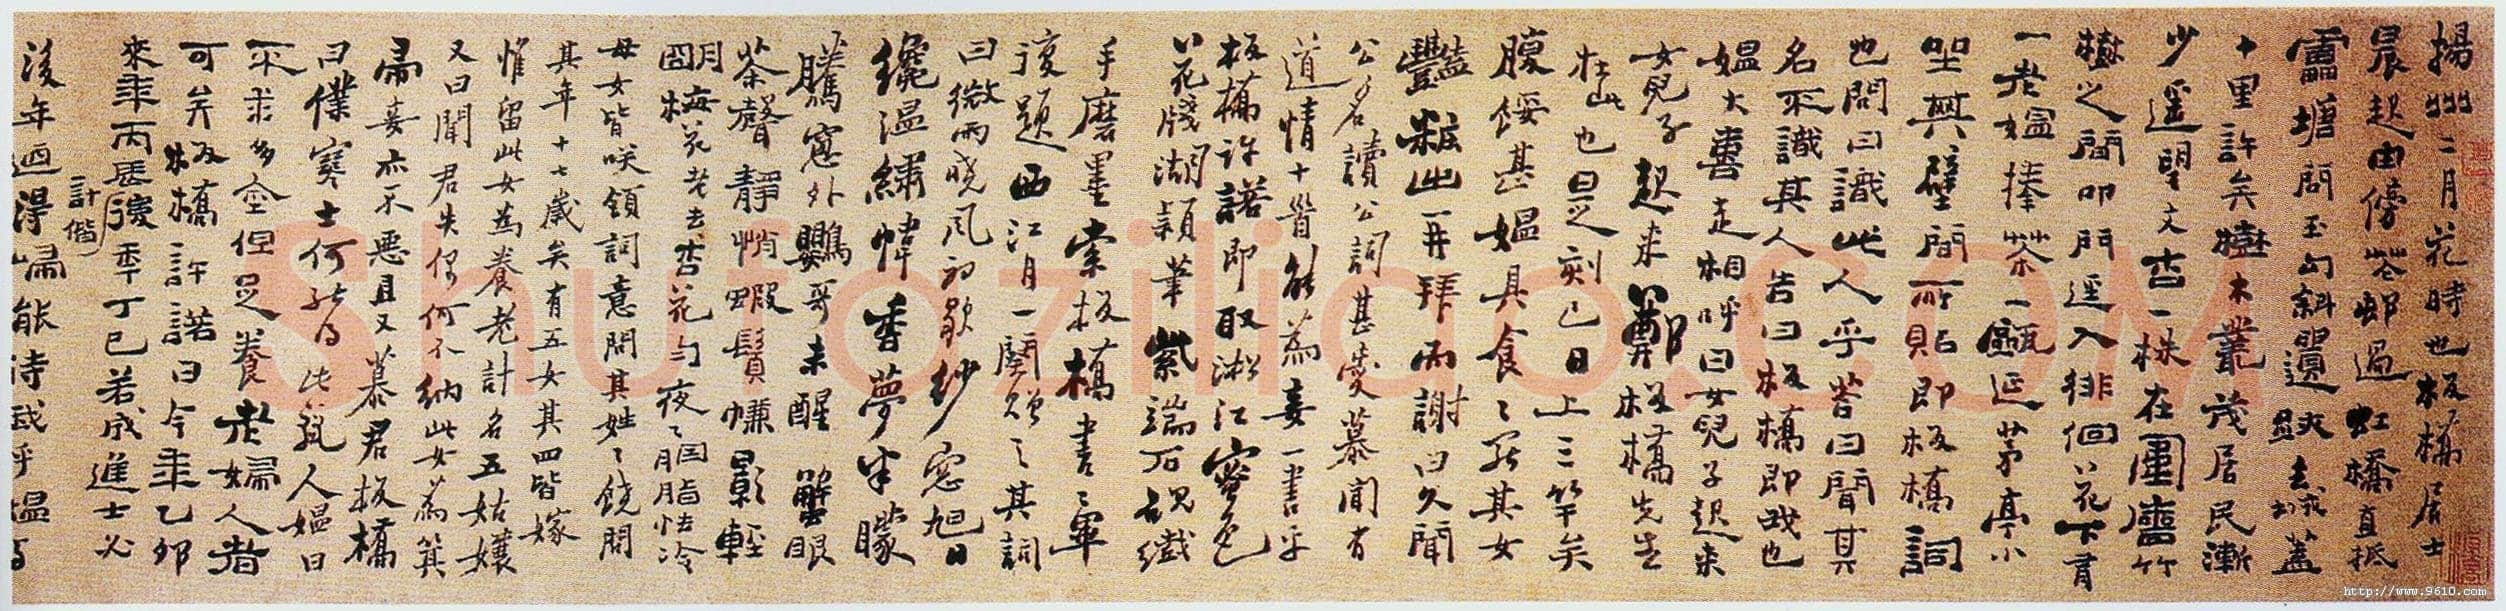 揚州二月花時也板橋居士
晨起由傍花邨過虹橋直抵
雷塘問玉勾斜遺跡去城蓋
十里許矣樹木叢茂居民漸
少遥望文杏一株在圍牆竹
樹之間叩門逕入徘徊花下有
一老媼捧茶一甌延茅亭小
坐其壁間所貼即板橋詞
也問曰識此人乎荅曰聞其
名不識其人告曰板橋即我也
媼大喜走相呼曰女兒子起來
女兒子起來鄭板橋先生
在此也是刻已日上三竿矣
腹餒甚媼具食食罷其女
豔粧出再拜而謝曰久聞
公名讀公詞甚愛慕聞有
道情十首能為妾一書乎
板橋許諾即取淞江蜜色
花牋湖穎筆紫端石硯纖
手磨墨索板橋書書畢
復題西江月一闋贈之其詞
曰微雨曉風初歇紗窓旭日
纔温繡幃香夢半朦
騰窓外鸚哥未醒蟹眼
茶聲靜悄蝦鬚簾影輕
明梅花老去杏花勻夜夜胭脂怯冷
母女皆笑領詞意問其姓姓饒問
其年十七歲矣有五女其四皆嫁
惟留此女為養老計名五姑娘
又曰聞君失偶何不納此女為箕
帚妾亦不惡且又慕君板橋
曰僕寒士何能得此麗人媼曰
不求多金但足養老婦人者
可矣板橋許諾曰今年乙卯
來年丙辰計偕後年丁巳若成進士必
後年迺得歸能待我乎媼與
Shufaziliao.COM
http://www.9610.com